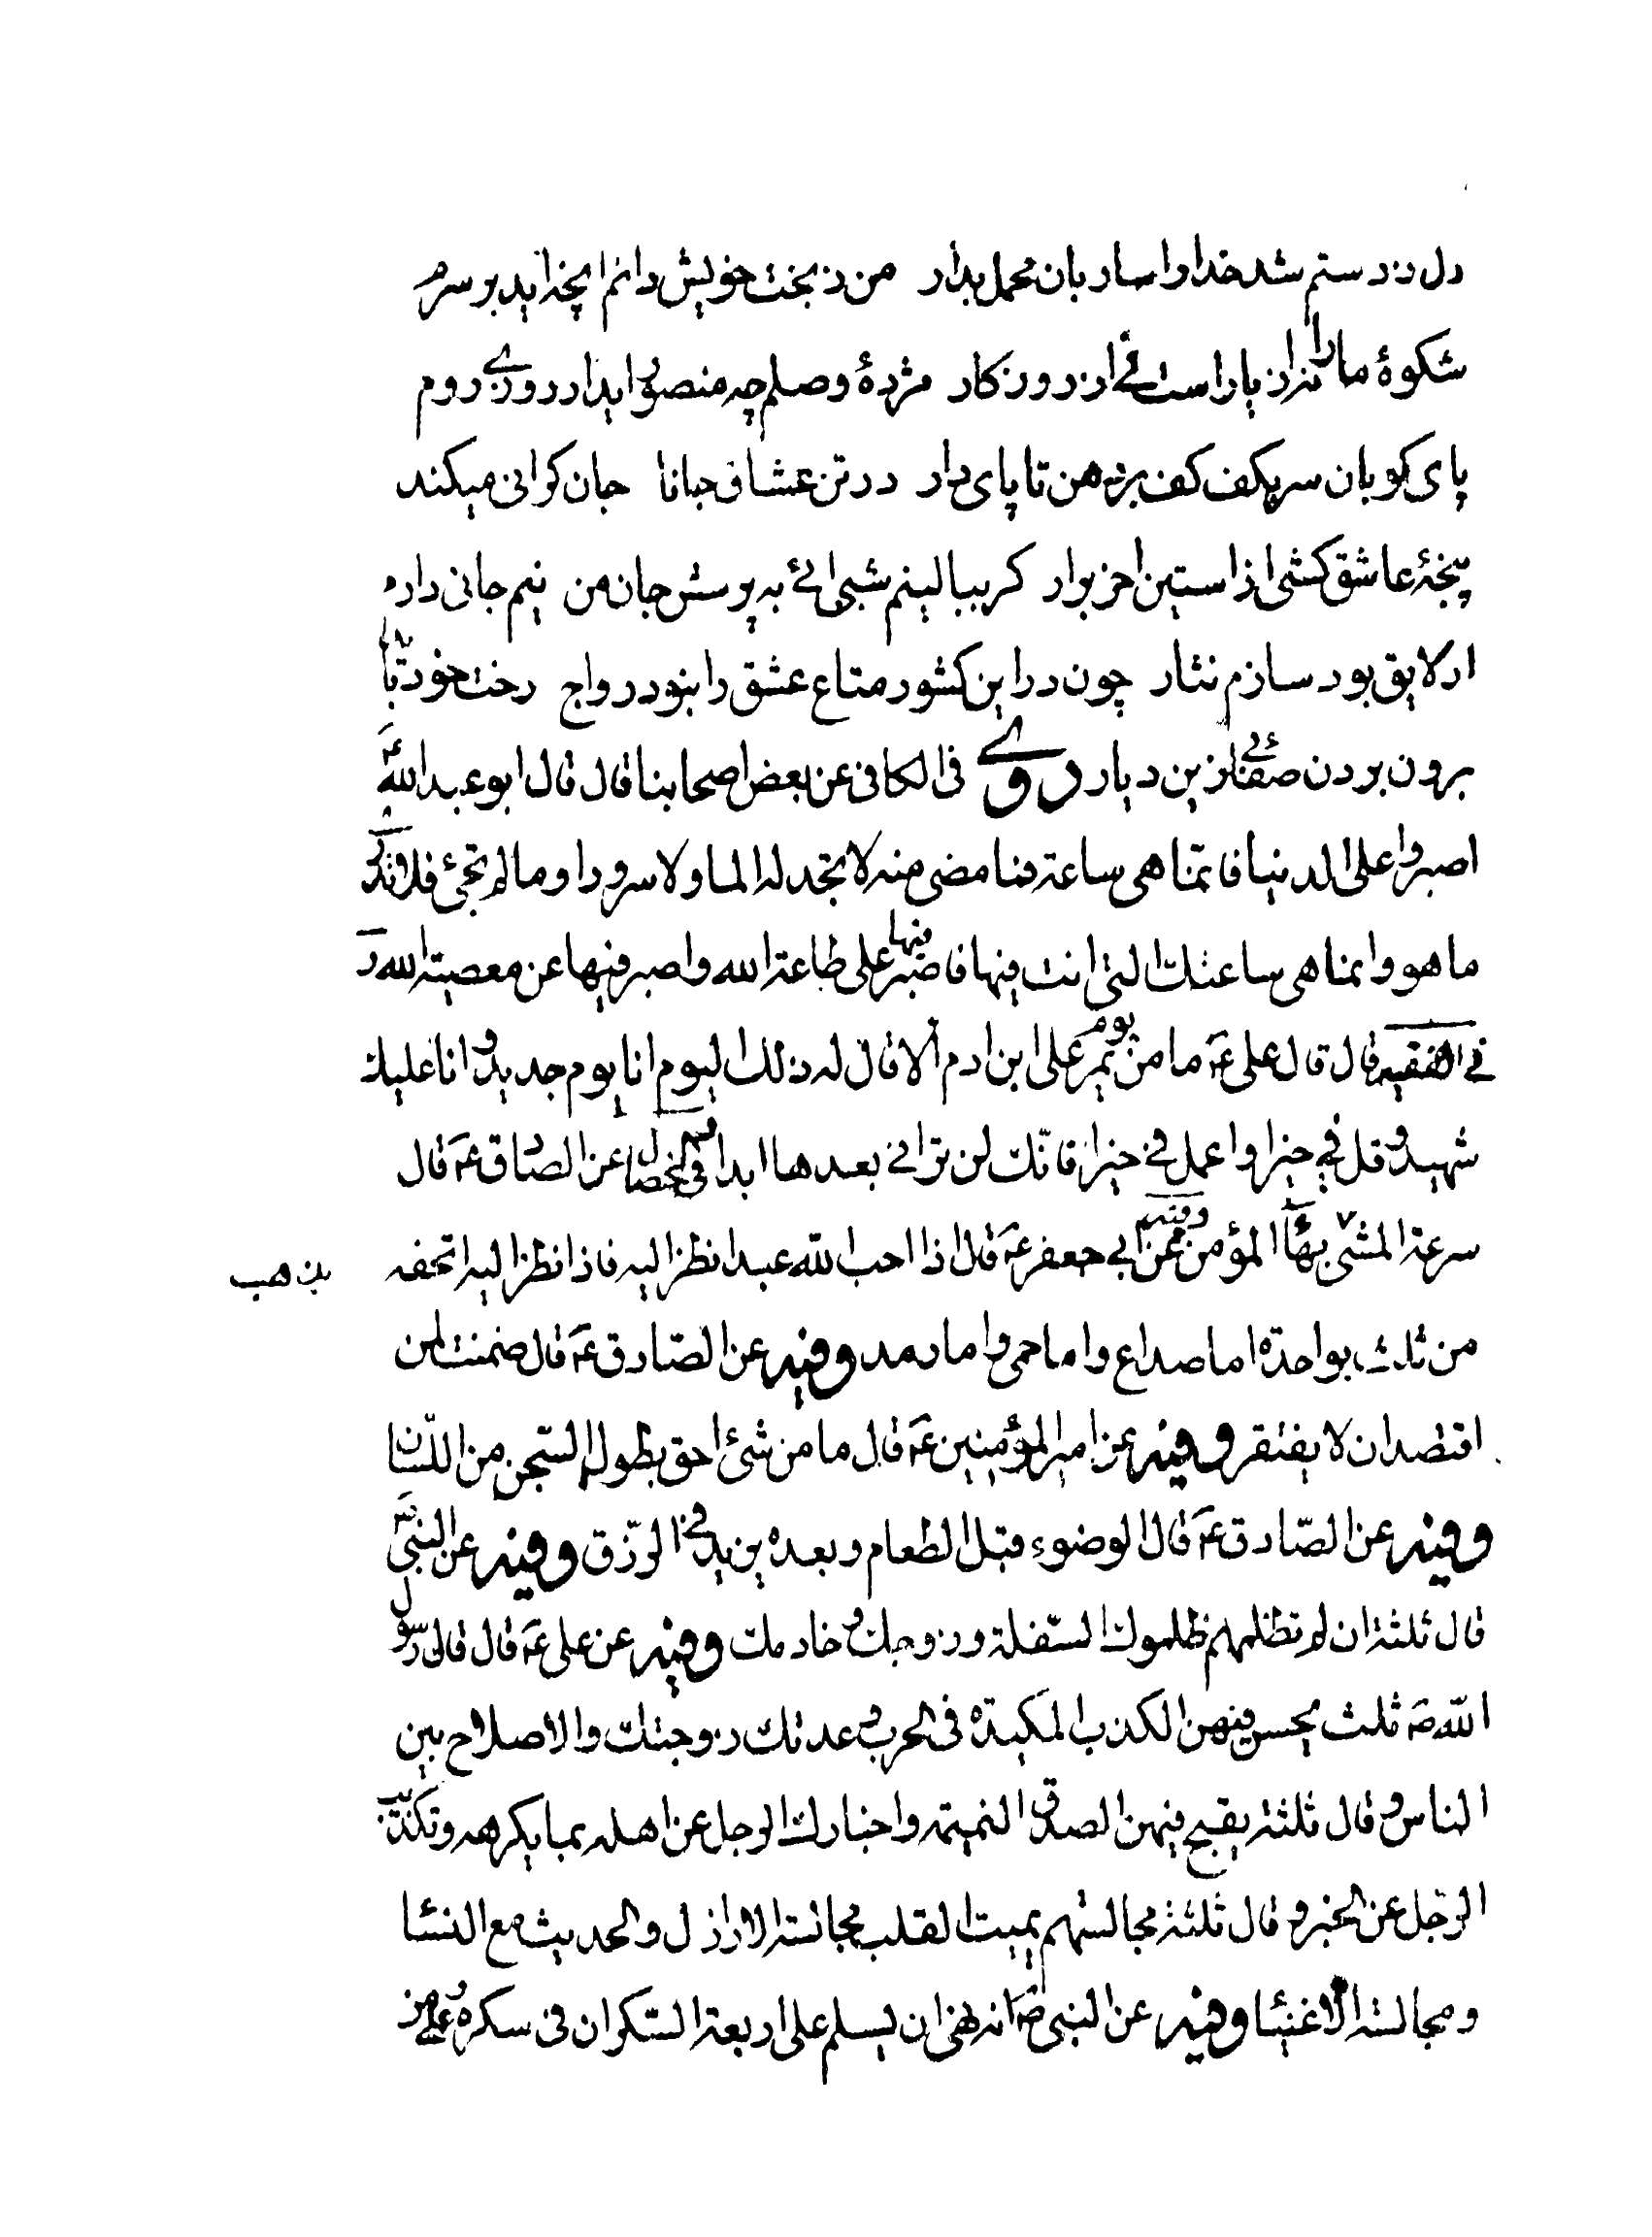 دل ز دستم شد خدا را ساربان محمل بدار من ز بخت خویش دانم آنچه آید بر سرم
شکوهٔ ما را نه از یار است نی از روزکار مژدهٔ وصلم چه منصور ار بداراز روزی روم
پای کوبان سر بکف کف بر دهن تا پای دار در تن عشاق جانا جان کرانی میکند
پنجهٔ عاشق کشی از آستین آخر برآر کر ببالینم شبی آئی به پرسش جان من نیم جانی دارم
ار لایق بود سازم نثار چون در این کشور متاع عشق را نبود رواج رخت خود باید
برون بردن صفائی زین دیار روی فی الکافی عن بعض اصحابنا قال قال ابو عبد الله ع
اصبروا علی الدنیا فانما هی ساعة فما مضی منه لا تجد له الما ولا سرورا وما لم تجئ فلا تدری
ما هو وانما هی ساعتک التی انت فیها فاصبر فیها علی طاعة الله واصبر فیها عن معصیة الله
فی الفقیه قال قال علی ع ما من یوم یمر علی ابن ادم الا قال له ذلک الیوم انا یوم جدید وانا علیک
شهید وقل فی خیرا واعمل فی خیرا فانک لن ترانی بعدها ابدا فی الخصال عن الصادق ع قال
سرعة المشی یذهب ببهاء المؤمن وفیه عن ابی جعفر ع قال اذا احب الله عبدا نظر الیه فاذا نظر الیه اتحفه
من ثلث بواحدة اما صداع واما حمی واما رمد وفیه عن الصادق ع قال ضمنت لمن
اقتصد ان لا یفتقر وفیه عن امیر المؤمنین ع قال ما من شئ احق بطول السجن من اللسان
وفیه عن الصادق ع قال الوضوء قبل الطعام وبعده یزید فی الرزق وفیه عن النبی ص
قال ثلثة ان لم تظلمهم ظلموک السفلة وزوجک وخادمک وفیه عن علی ع قال قال لی رسول
الله ص ثلث یحسن فیهن الکذب المکیدة فی الحرب وعدتک زوجتک والاصلاح بین
الناس وقال ثلثة یقبح فیهن الصدق النمیمة واخبارک الرجل عن اهله بما یکرهه وتکذیب
الرجل عن الخبر وقال ثلثة مجالستهم یمیت القلب مجالسة الاراذل والحدیث مع النساء
ومجالسة الاغنیاء وفیه عن النبی ص انه نهی ان یسلم علی اربعة السکران فی سکره وعلی من